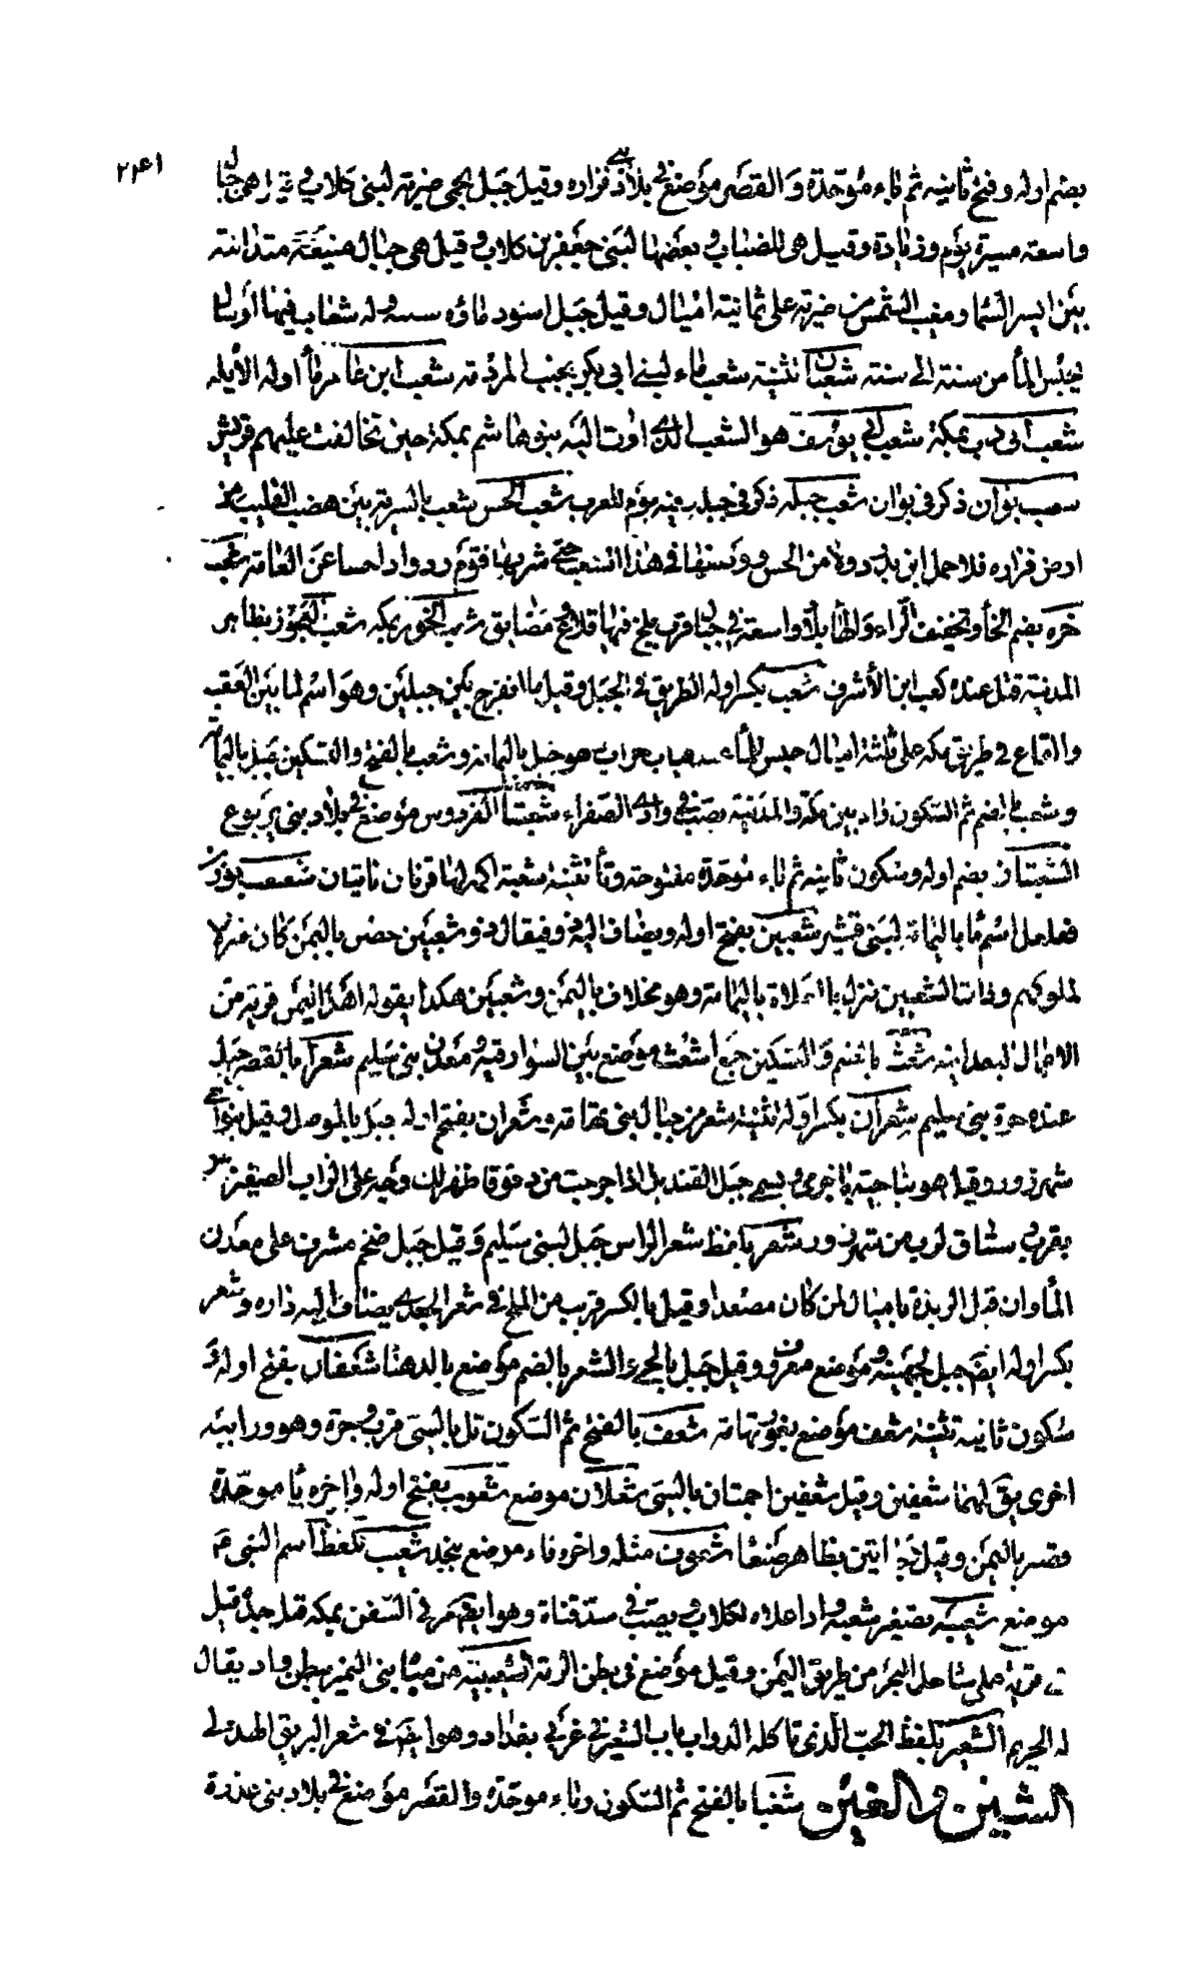 ٢٤١
بضم اوله وفتح ثانيه ثم باء موحدة والقصر موضع في بلاد بني فزاره وقيل جبل بحمى ضرية لبنى كلاب وقيل هي جبال
واسعة مسيرة يوم وزيادة وقيل هي للضباب وبعضها لبني جعفر بن كلاب وقيل هي جبال منيعة متدانية
بين ايسر الشمال ومغيب الشمس من ضرية على ثمانية اميال وقيل جبل اسود ماؤه وله شعاب فيها اوشال
يحبس الماء من سنة الى سنة شعبان تثنية شعب ماء لبني ابي بكر بجنب المردمة شعب ابن عامر ماء اوله الأيله
شعب ابى دب بمكة شعب ابي يوسف هو الشعب الذى اوت اليه بنو هاشم بمكة حين تخالفت عليهم قريش
شعب بوان ذكر فى بوان شعب جبله ذكر فى جبله يوم للعرب شعب الحيس شعب بالشربة بين هضب القليب من
ارض فزاره فلا حمل ابن بدر دلاء من الحيس ووضعها فى هذا الشعب حتى شرب منها قوم وردوا داحسا عن الغاية شعب
خره بضم الخاء وتخفيف الراء والهاء بلاد واسعة في جبال قرب بلخ فيها قلاع ومضايق شعب الخوز بمكه شعب العجوز بظاهر
المدينة قتل عنده كعب ابن الأشرف شعب بكسر اوله الطريق في الجبل وقيل ما انفرج بين جبلين وهو اسم لما بين العقبه
والقاع في طريق مكه على ثلثة اميال حبس للماء هو جبل باليمامه وشعب بالفتح والتسكين جبل باليمامة
وشعب بالضم ثم السكون واد بين مكة والمدينة يصب في وادى الصفراء شعبتا الفردوس موضع في بلاد بني يربوع
الشعبتان بضم اوله وسكون ثانيه ثم باء موحدة مفتوحة وتاء تثنية شعبة اكمه لها قرنان ناتيان شعبعب بوزن
فعلعل اسم ماء باليمامة لبني قشير شعبين بفتح اوله ويضاف اليه ذو فيقال ذو شعبين حصن باليمن كان منزلا
لملوكهم وذات الشعبين باليمامة وهو مخلاف باليمن وشعبين هكذا يقوله اهل اليمن قرية من
بالضم والتسكين جمع اشعث موضع بين السوارقيه ومعدن بنى سليم شعرا بالقصر جبل
عند حرة بني سليم شعران بكسر اوله تثنية شعر من جبال بني تهامة وشعران بفتح اوله جبل بالموصل وقيل بنواحي
شهرزور وقيل هو بناحية باجرمى ويسمى جبل القنديل اذا خرجت من دقوقا ظهر لك وجه على الزاب الصغير
بقرب رستاق الزاب من شهرزور شعر بلفظ شعر الراس جبل لبني سليم وقيل جبل ضخم مشرف على معدن
الماوان قبل الربذة باميال لمن كان مصعدا وقيل بالكسر قرب من الملح في شعر الجعدى يضاف اليه داره وشعر
بكسر اوله ايضا جبل لجهينة وموضع معروف وقيل جبل بالحمى والشعر بالضم موضع بالدهنا شعفان بفتح اوله و
سكون ثانيه تثنية شعف موضع بغور تهامة شعف بالفتح ثم السكون تل بالسى قرب وجرة وهو ورابيه
اخرى يقال لهما شعفين وقيل شعفين اجمتان بالسى شعلان موضع شعوب بفتح اوله واخره باء موحدة
قصر باليمن وقيل بظاهر صنعا شعوف مثله واخره فاء موضع بنجد شعيب بلفظ اسم النبى
موضع شعيبه تصغير شعبه واد اعلاه لكلاب ويصب في سد قناة وهو ايضا مرفى السفن بمكه قبل جدة وقيل
قرية على شاحل البحر من طريق اليمن وقيل موضع في بطن الرمة الشعيبية من مياه بني النمير ببطن واد يقال
له الحريم الشعير بلفظ الحب الذى تاكله الدواب باب الشعير في غربي بغداد وهو ايضا في شعر البريق الهذلي
الشين والغين شغبا بالفتح ثم السكون وباء موحدة والقصر موضع في بلاد بني عذرة